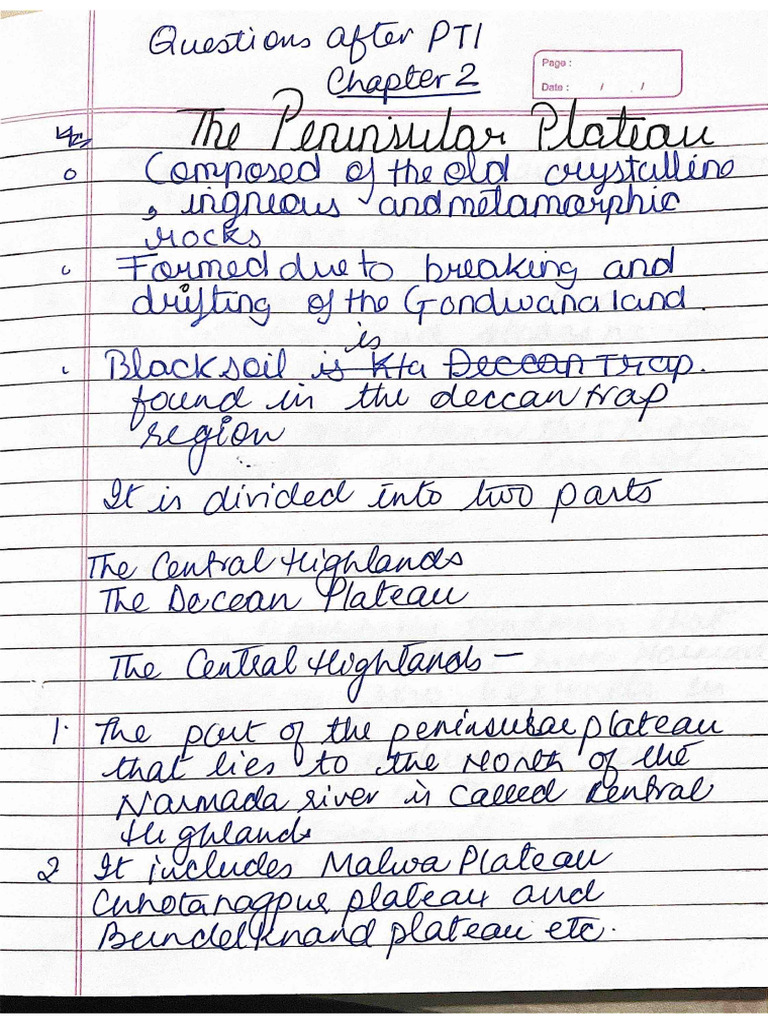 Questions after PT1
Chapter 2
Page :
Date : / /
The Peninsular Plateau
Composed of the old crystalline
, ingneous and metamorphic
rocks
Formed due to breaking and
drifting of the Gondwana land.
is
Black soil is K/a Deccan Trap.
found in the deccan trap
region
It is divided into two parts
The Central Highlands
The Deccan Plateau
The Central Highlands —
1. The part of the peninsular plateau
that lies to the North of the
Narmada river is called Central
Highlands
2 It includes Malwa Plateau
Chhotanagpur plateau and
Bundelkhand plateau etc.